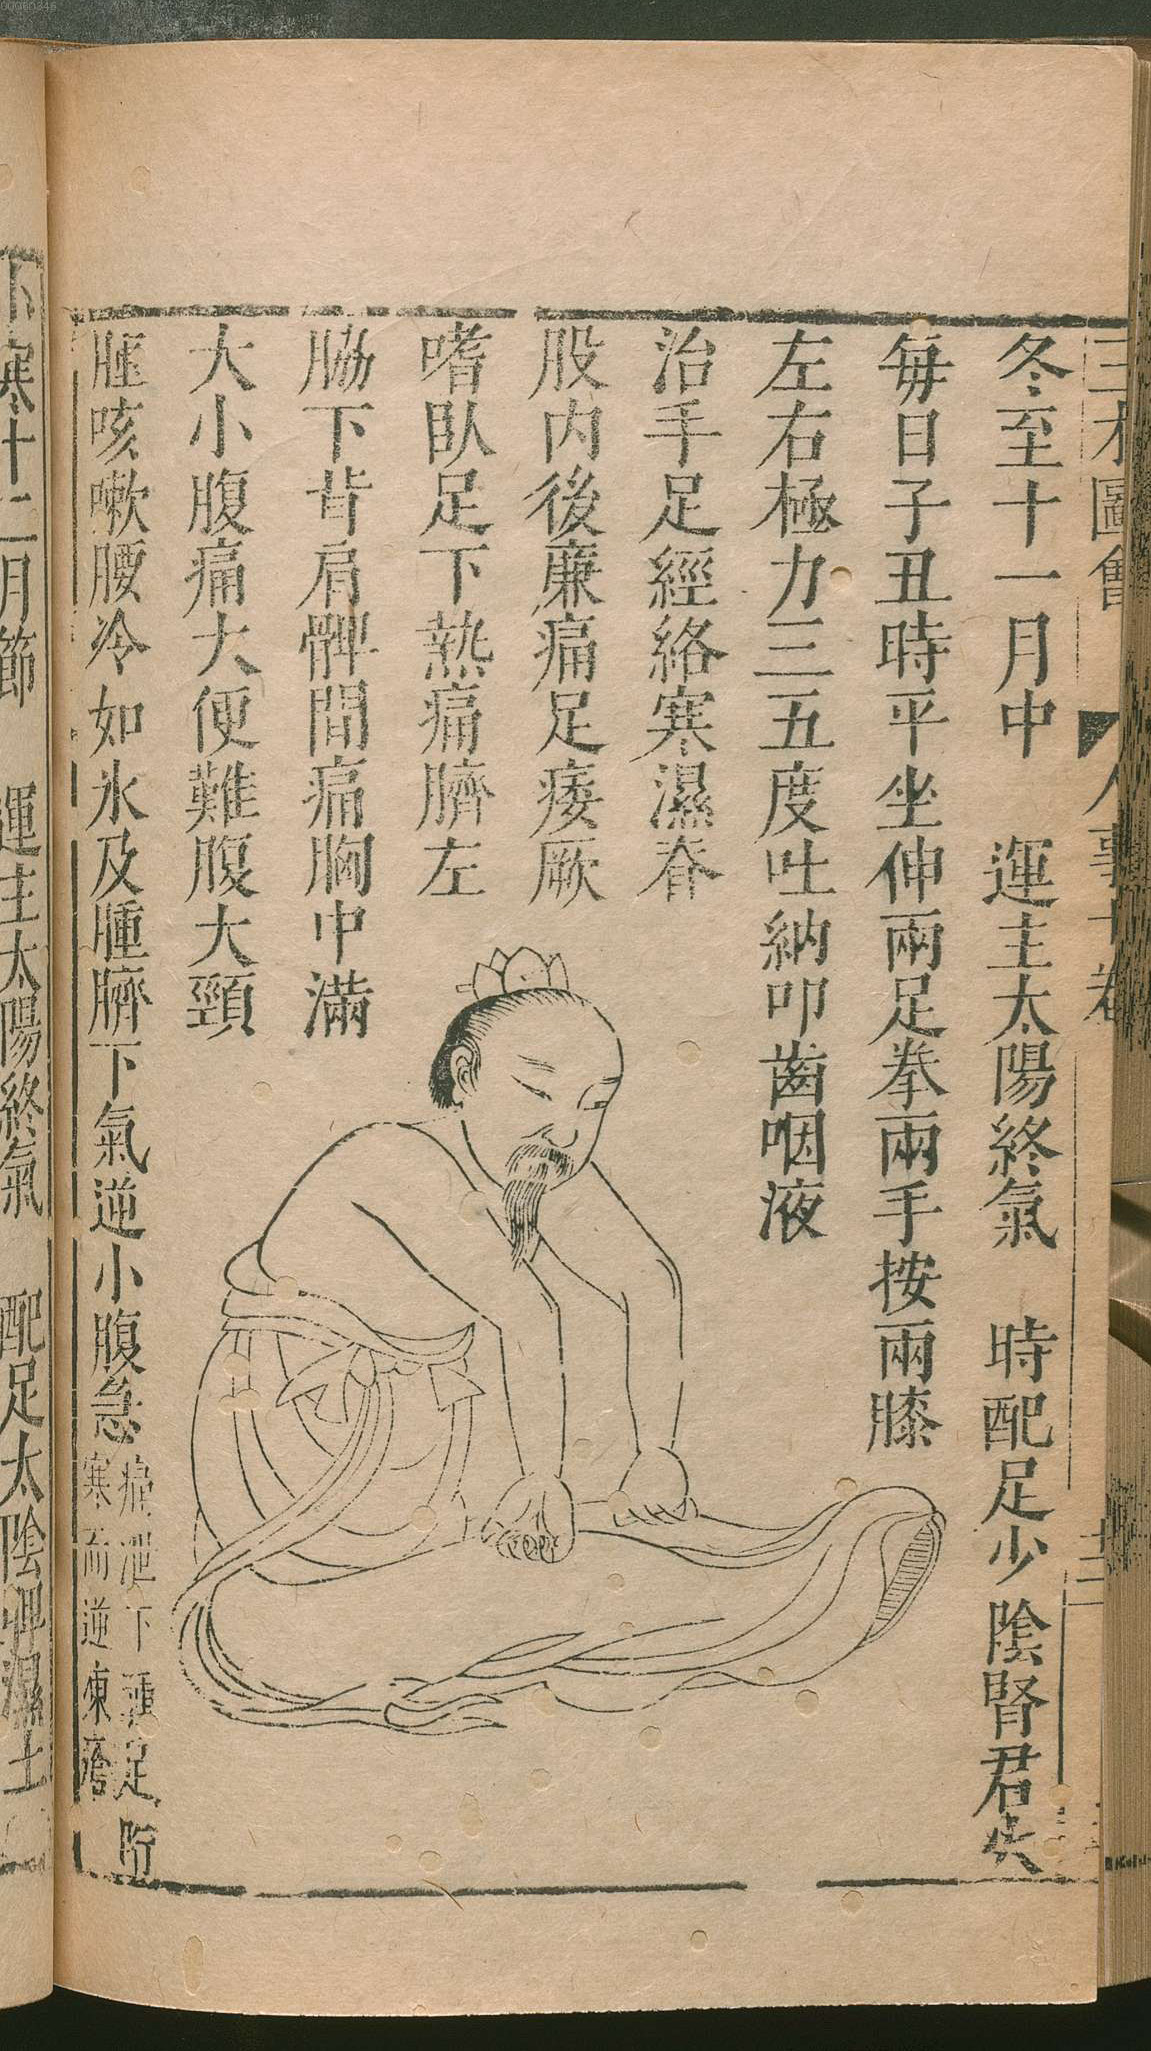 三才圖會 人事十卷
冬至十一月中 運主太陽終氣 時配足少陰腎君火
每日子丑時平坐伸兩足拳兩手按兩膝
左右極力三五度吐納叩齒咽液
治手足經絡寒濕脊
股内後廉痛足痿厥
嗜臥足下熱痛臍左
脇下背肩髀間痛胸中滿
大小腹痛大便難腹大頸
腫咳嗽腰冷如氷及腫臍下氣逆小腹急
痛泄下腫足胻
寒而逆凍瘡
小寒十二月節 運主太陽終氣 配足太陰脾濕土